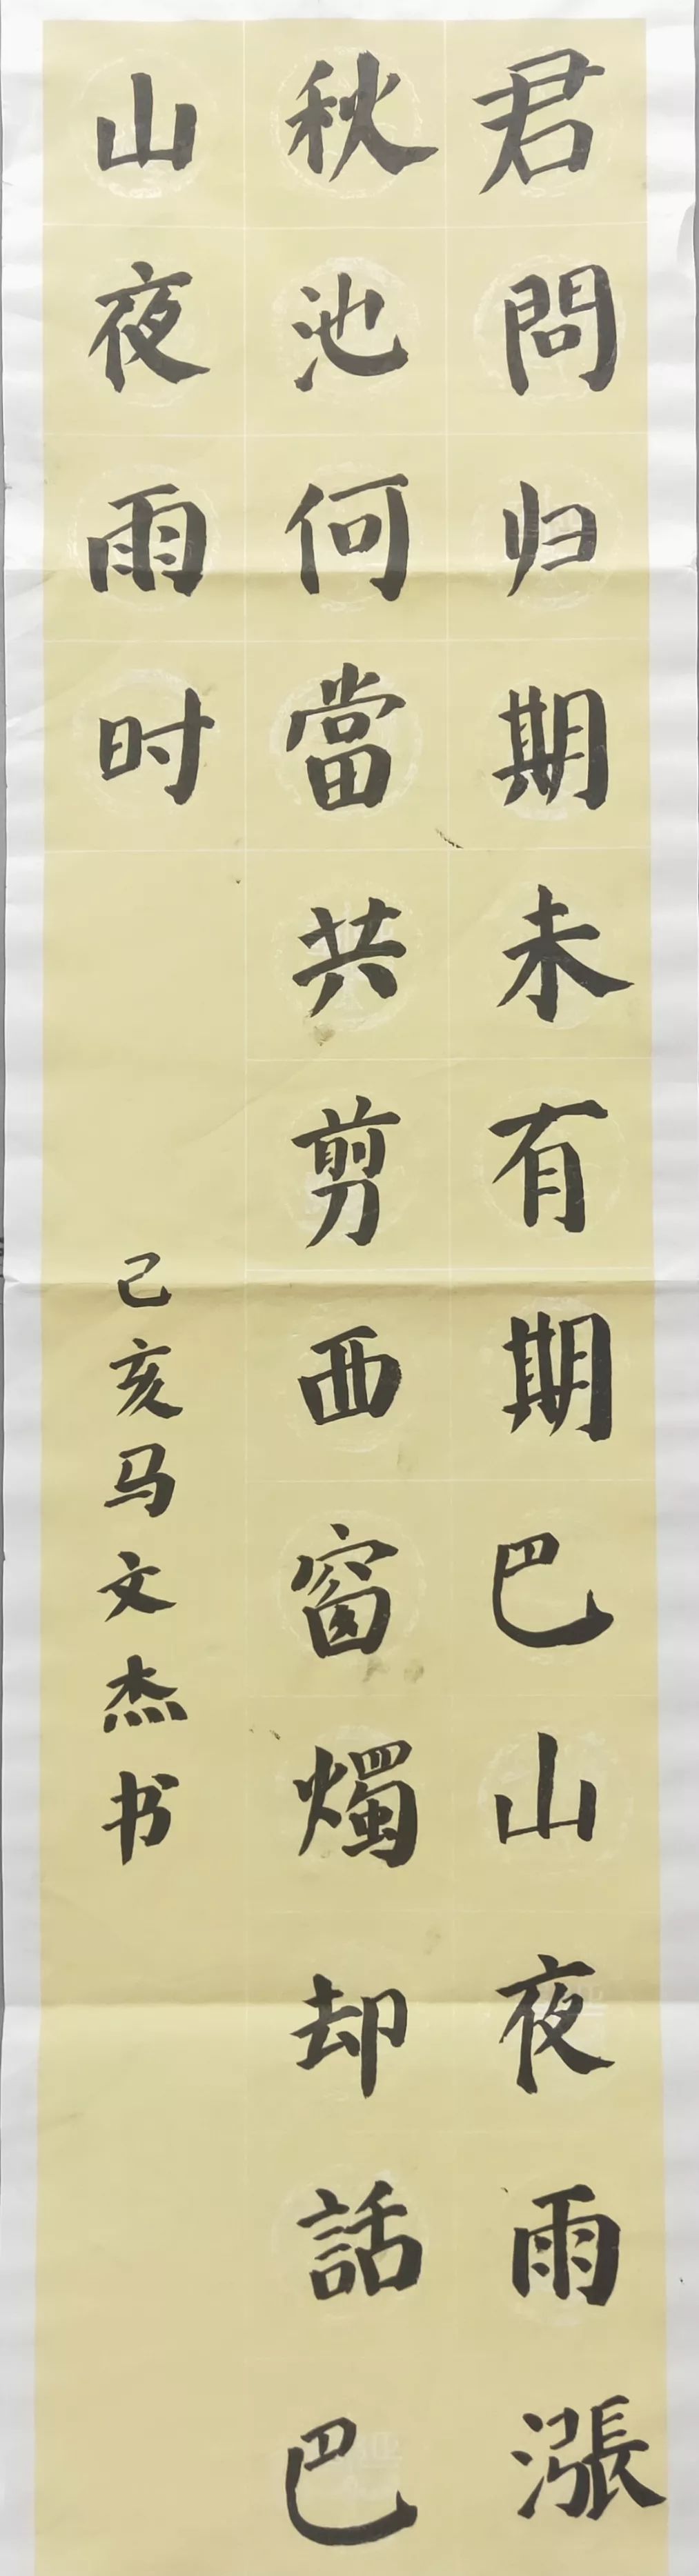 君問归期未有期巴山夜雨漲
秋池何當共剪西窗燭却話巴
山夜雨时
己亥马文杰书